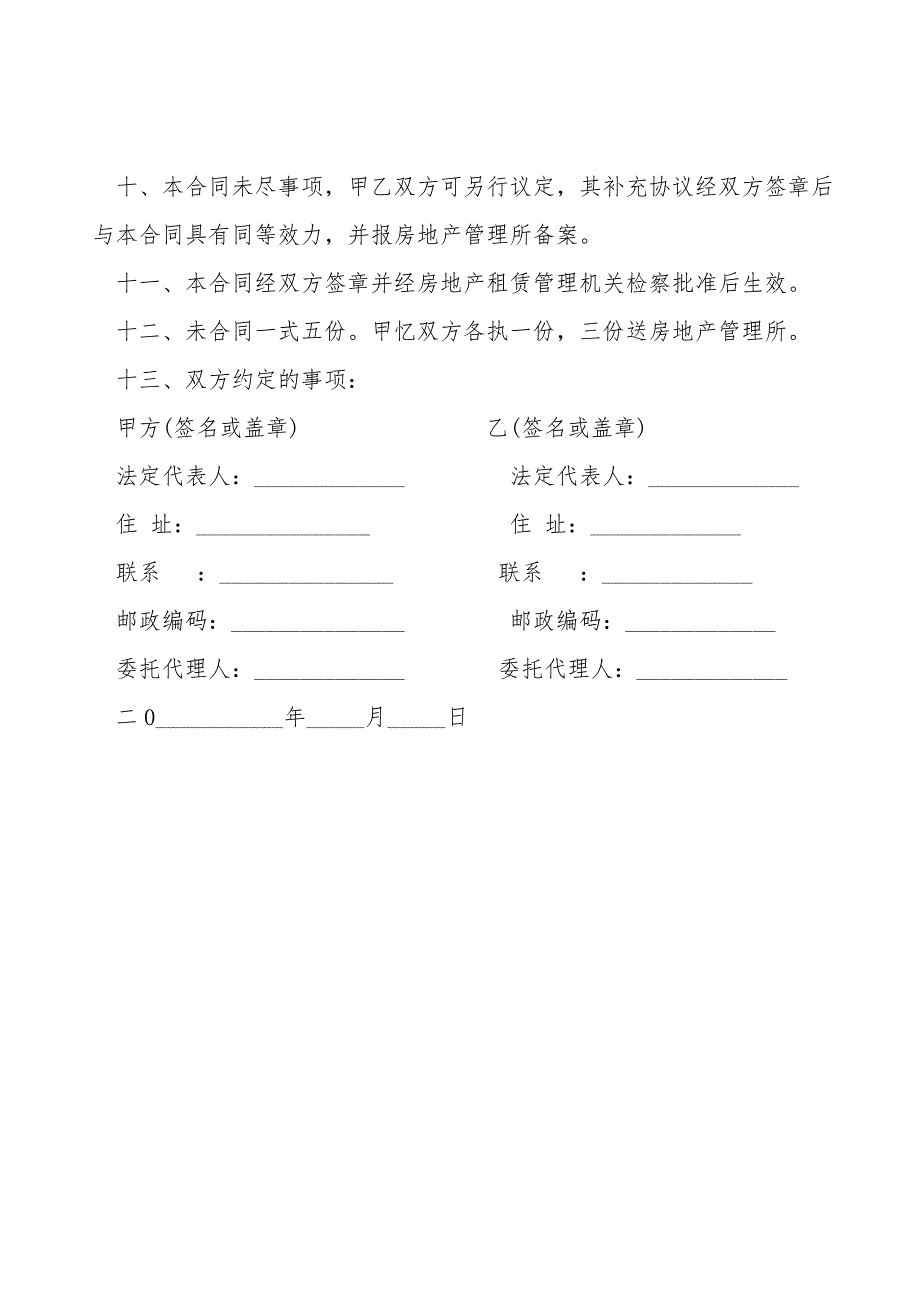 十、本合同未尽事项，甲乙双方可另行议定，其补充协议经双方签章后
与本合同具有同等效力，并报房地产管理所备案。
十一、本合同经双方签章并经房地产租赁管理机关检察批准后生效。
十二、未合同一式五份。甲忆双方各执一份，三份送房地产管理所。
十三、双方约定的事项：
甲方(签名或盖章) 乙(签名或盖章)
法定代表人：_____________ 法定代表人：_____________
住 址：_______________ 住 址：_____________
联系 ：_______________ 联系 ：_____________
邮政编码：_______________ 邮政编码：_____________
委托代理人：_____________ 委托代理人：_____________
二0___________年_____月_____日